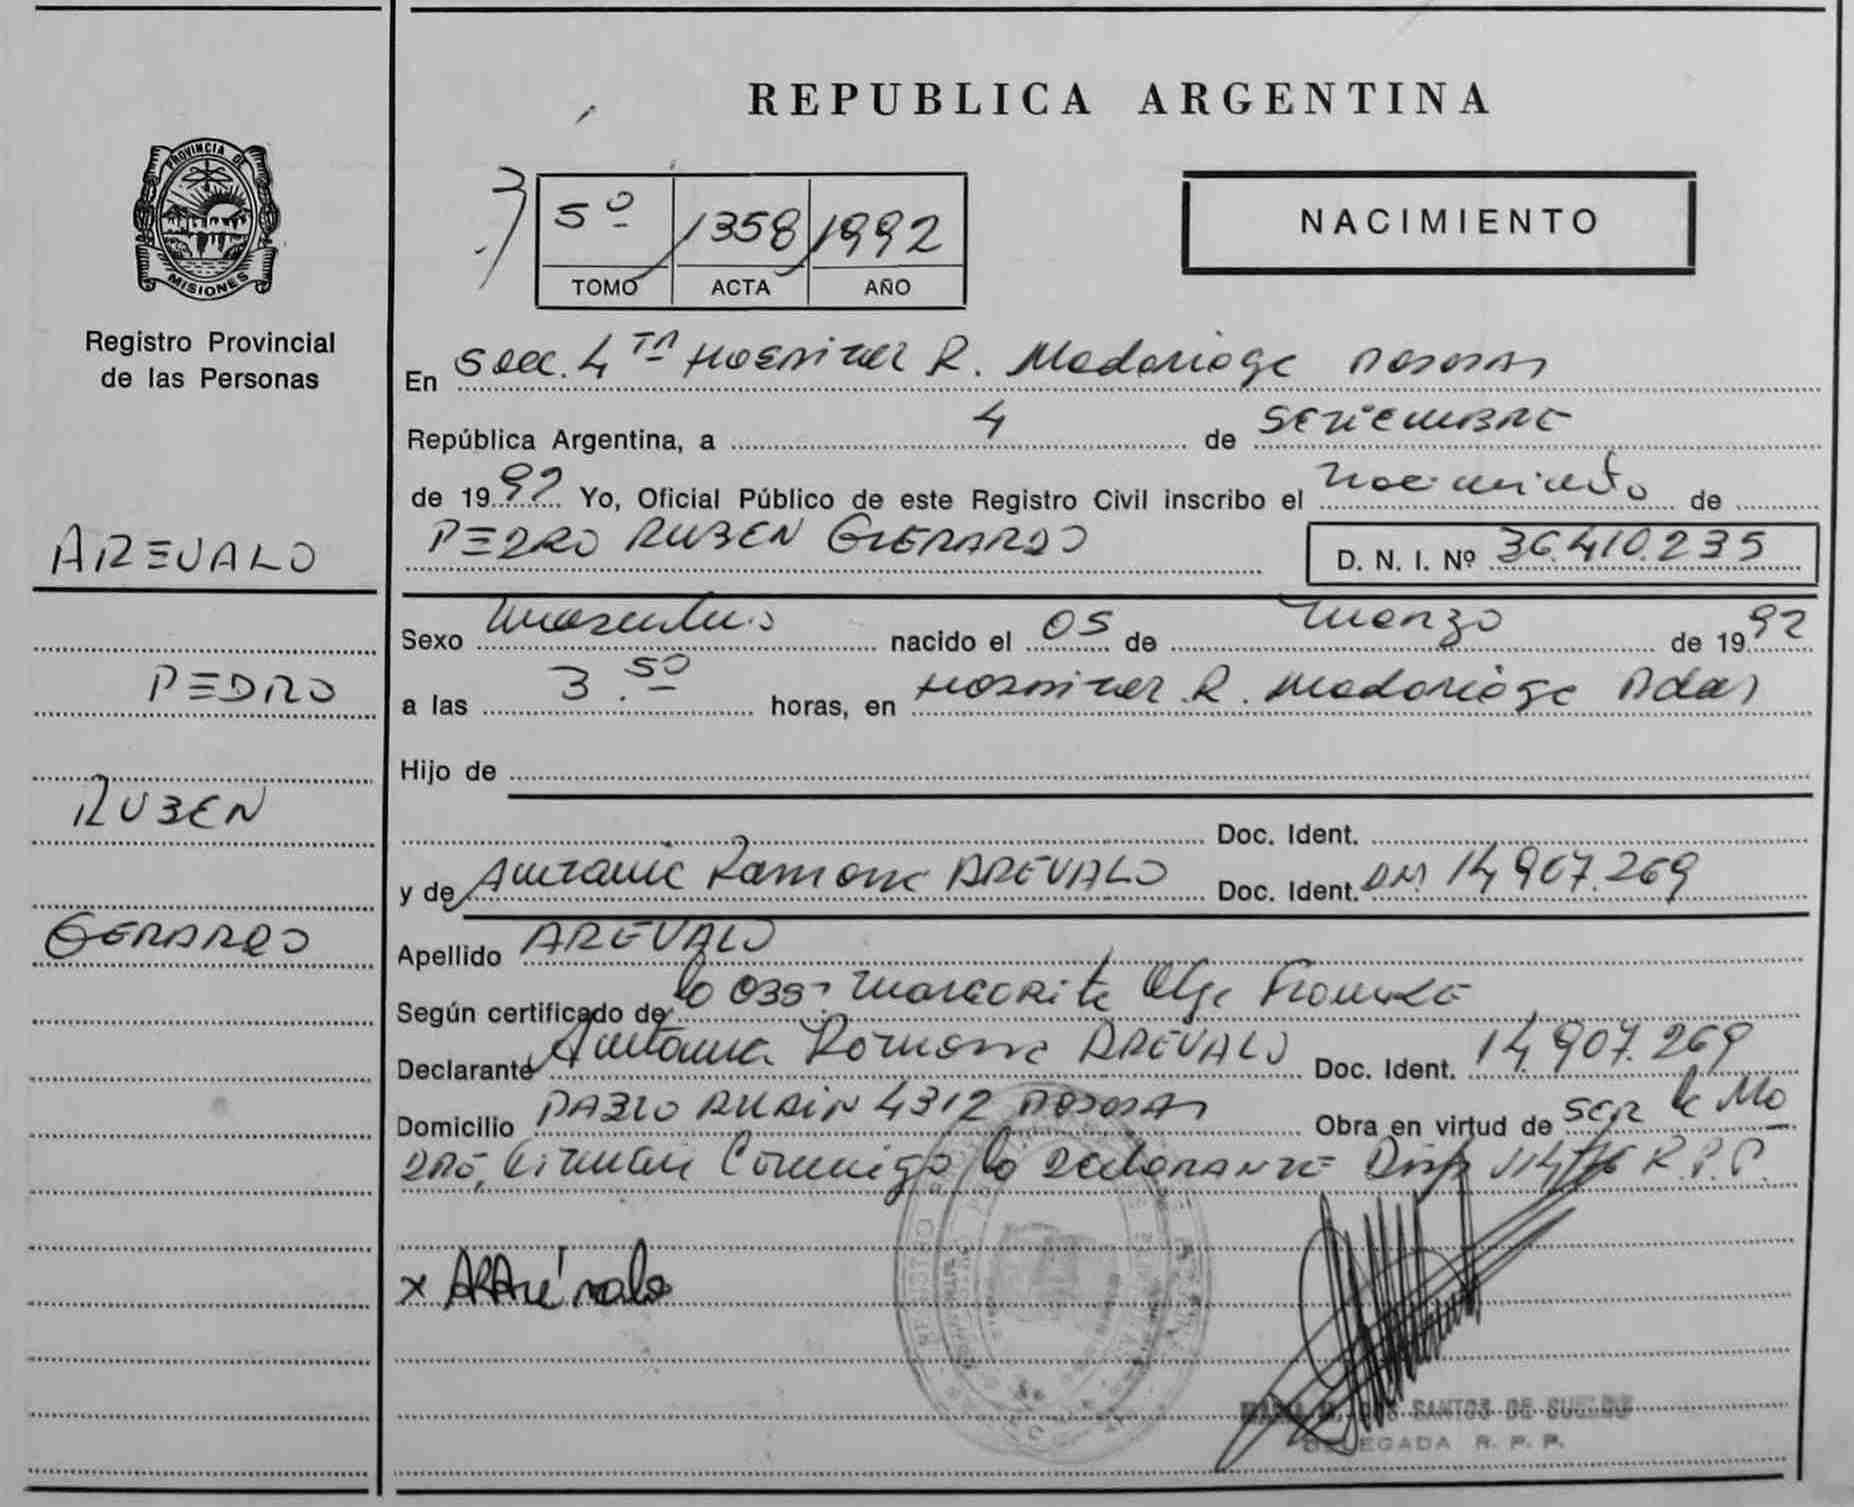 REPUBLICA ARGENTINA
PROVINCIA DE
MISIONES
Registro Provincial
de las Personas
5º 1358 1992
TOMO ACTA AÑO
NACIMIENTO
En Secc. 4 TA Hospital R. Madariaga Posadas
República Argentina, a 4 de SETIEMBRE
de 1992 Yo, Oficial Público de este Registro Civil inscribo el nacimiento de
PEDRO RUBEN GERARDO D. N. I. Nº 36.410.235
AREVALO
PEDRO
RUBEN
GERARDO
Sexo masculino nacido el 05 de Marzo de 1992
a las 3.50 horas, en Hospital R. Madariaga Pdas
Hijo de
Doc. Ident.
y de Antonia Ramona AREVALO Doc. Ident. DNI 14.907.269
Apellido AREVALO
Según certificado de la Obst Margarita Olga
Declarante Antonia Ramona AREVALO Doc. Ident. 14.907.269
Domicilio PABLO 4312 Posadas Obra en virtud de SER la MA
DRE, Firman Conmigo la DECLARANTE Disp R.P.P.
x ARArévalo
DOS SANTOS DE
DELEGADA R. P. P.